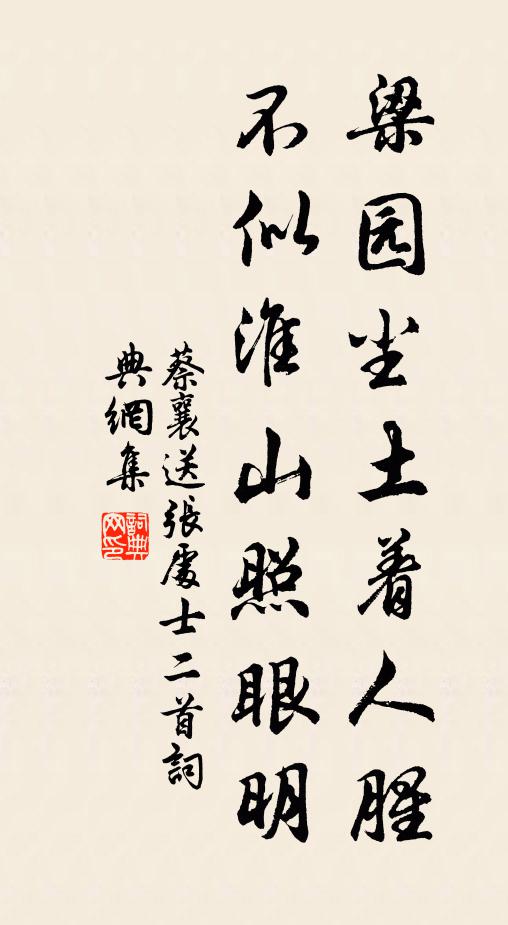 梁园尘土着人腥
不似淮山照眼明
蔡襄送張處士二首詞
典網集
詞典网印